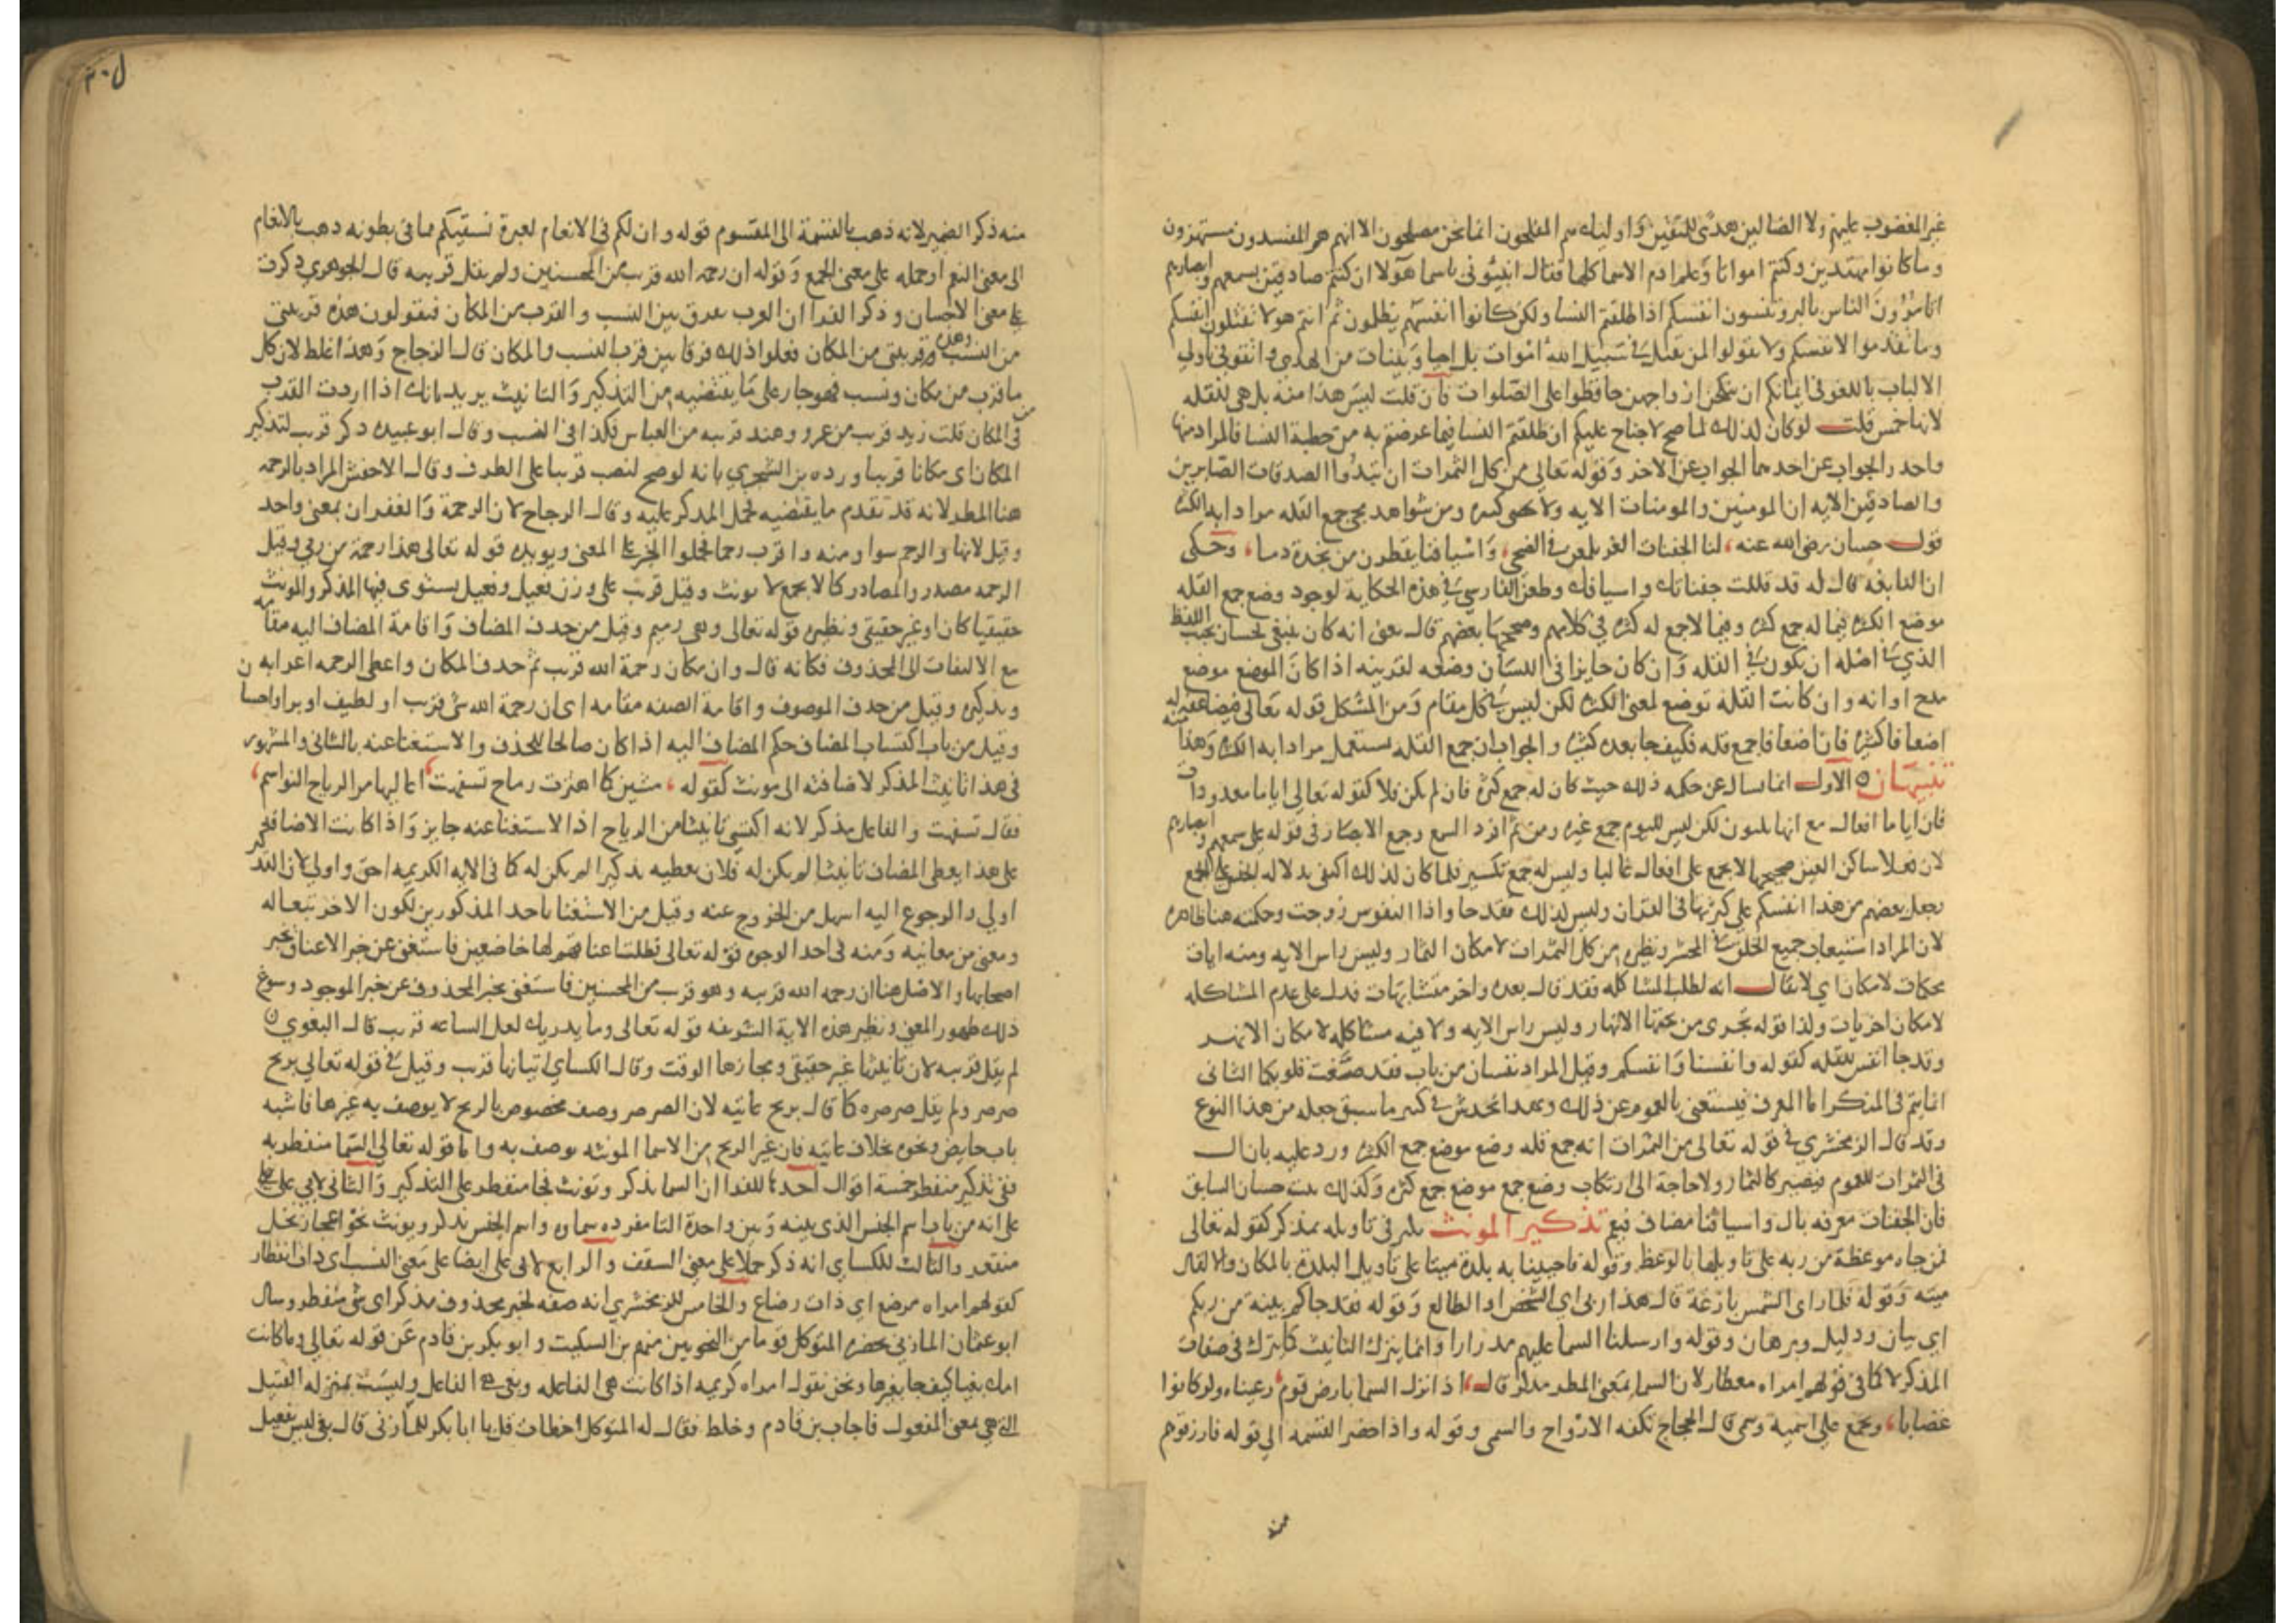 غير المغضوب عليهم ولا الضالين هدى للمتقين واوليك هم المفلحون انما نحن مصلحون الا انهم هم المفسدون مستهزون
وما كانوا مهتدين وكنتم امواتا وعلم ادم الاسما كلها فقال انبئوني باسما هولا ان كنتم صادقين بسمعهم وابصارهم
اتامرون الناس بالبر وتنسون انفسكم اذا طلقتم النسا ولكن كانوا انفسهم يظلمون ثم انتم هولا تقتلون انفسكم
وما تقدموا لانفسكم ولا تقولوا لمن يقتل في سبيل الله اموات بل احيا وبينات من الهدى واتقوني يا اولي
الالباب باللغو في ايمانكم ان ينكحن ازواجهن حافظوا على الصلوات فان قلت ليس هذا منه بل هي للقله
لانها خمس قلت لو كان كذلك لما صح لا جناح عليكم ان طلقتم النسا فيما عرضتم به من خطبة النسا فالمراد منها
واحد والجواب عن احدهما الجواب عن الاخر وقوله تعالى من كل الثمرات ان تبدوا الصدقات الصابرين
والصادقين الايه ان المومنين والمومنات الايه ولا تحصى كثره ومن شواهد مجي جمع القله مرادا به الكثره
قول حسان رضي الله عنه، لنا الجفنات الغر يلمعن في الضحى، واسيافنا يقطرن من نجدة دما، وحكى
ان النابغه قال له قد قللت جفناتك واسيافك وطعن الفارسي في هذه الحكاية لوجود وضع جمع القله
موضع الكثره فيما له جمع كثره وفيما لا جمع له كثره في كلامهم وصححها بعضهم قال يعني انه كان ينبغي لحسان تجنب اللفظ
الذي في اصله ان يكون في القله وان كان جايزا في اللسان وضعه لقرينه اذا كان الموضع موضع
مدح او انه وان كانت القلة توضع لمعنى الكثره لكن ليس في كل مقام ومن المشكل قوله تعالى فيضاعفه له
اضعافا كثيره فان اضعافا جمع قله فكيف جا بعده كثيره والجواب ان جمع القله يستعمل مرادا به الكثره وهذا منه
تنبيهان الاول انما سال عن حكمه ذلك حيث كان له جمع كثره فان لم يكن فلا كقوله تعالى اياما معدودات
فان اياما افعال مع انها ثلثون لكن ليس لليوم جمع غيره ومن ثم افرد السمع وجمع الابصار في قوله على سمعهم وابصارهم
لان فعلا ساكن العين صحيحها لا يجمع على افعال غالبا وليس له جمع تكسير فلما كان كذلك اكتفى بدلاله الجنس على الجمع
وجعل بعضهم من هذا انفسكم على كثرتها في القران وليس كذلك فقد جا واذا النفوس زوجت وحكمته هنا ظاهره
لان المراد استيعاب جميع الخلق في المحشر ونظيره من كل الثمرات لامكان الثمار وليس راس الايه ومنه ايات
محكمات لامكان اي لا يقال انه لطلب المشاكله فقد قال بعده واخر متشابهات فدل على عدم المشاكله
لامكان اخريات ولذا قوله تجري من تحتها الانهار وليس راس الايه ولا فيه مشاكله لامكان الانهر
وقد جا انفس للقله كقوله وانفسنا وانفسكم وقيل المراد نفسان من باب فقد صغت قلوبكما الثاني
انما يتم في المنكر اما المعرف فيستغنى بالعموم عن ذلك وبهذا يخدش في كثير مما سبق جعله من هذا النوع
وقد قال الزمخشري في قوله تعالى من الثمرات انه جمع قله وضع موضع جمع الكثره ورد عليه بان ال
في الثمرات للعموم فيصير كالثمار ولا حاجة الى ارتكاب وضع جمع موضع جمع كثره وكذلك بيت حسان السابق
فان الجفنات معرفه بال واسيافنا مضاف فيعم تذكير المونث يكثر في تاويله بمذكر كقوله تعالى
فمن جاه موعظة من ربه على تاويلها بالوعظ وقوله فاحيينا به بلدة ميتا على تاويل البلدة بالمكان والا لقال
ميته وقوله فلما راى الشمس بازغة قال هذا ربي اي الشخص او الطالع وقوله فقد جاكم بينه من ربكم
اي بيان ودليل وبرهان وقوله وارسلنا السما عليهم مدرارا وانما يترك التانيث كما يترك في صفات
المذكر لا كما في قولهم امراه معطار لان السما بمعنى المطر مذكر قال، اذا نزل السما بارض قوم، رعيناه ولو كانوا
غضابا، ويجمع على اسمية وسمي قال العجاج تلفه الارواح والسمي وقوله واذا حضر القسمه الى قوله فارزقوهم
منه
منه ذكر الضمير لانه ذهب بالقسمة الى المقسوم قوله وان لكم في الانعام لعبرة نسقيكم مما في بطونه ذهب بالانعام
الى معنى النعم او حمله على معنى الجمع وقوله ان رحمة الله قريب من المحسنين ولم يقل قريبه قال الجوهري ذكرت
على معنى الاحسان وذكر الفرا ان العرب تفرق بين النسب والقرب من المكان فيقولون هذه قريبتي
من النسب وهذه قريبتي من المكان فعلوا ذلك فرقا بين قرب النسب والمكان قال الزجاج وهذا غلط لان كل
ما قرب من مكان ونسب فهو جار على ما يقتضيه من التذكير والتانيث يريد بانك اذا اردت القرب
في المكان قلت زيد قريب من عمرو وهند قريبه من العباس فكذا في النسب وقال ابو عبيده ذكر قريب لتذكير
المكان اي مكانا قريبا ورده بن الشجري بانه لو صح لنصب قريبا على الظرف وقال الاخفش المراد بالرحمه
هنا المطر لانه قد تقدم ما يقتضيه فحمل المذكر عليه وقال الزجاج لان الرحمة والغفران بمعنى واحد
وقيل لانها والرحم سوا ومنه واقرب رحما فحملوا الخبر على المعنى ويويده قوله تعالى هذا رحمة من ربي وقيل
الرحمه مصدر والمصادر كما لا يجمع لا يونث وقيل قريب على وزن فعيل وفعيل يستوى فيها المذكر والمونث
حقيقيا كان او غير حقيقي ونظيره قوله تعالى وهي رميم وقيل من حذف المضاف واقامة المضاف اليه مقامه
مع الالتفات الى المحذوف فكانه قال وان مكان رحمة الله قريب ثم حذف المكان واعطى الرحمه اعرابه
وتذكيره وقيل من حذف الموصوف واقامة الصفه مقامه اي ان رحمة الله شي قريب او لطيف او بر او احسا
وقيل من باب اكتساب المضاف حكم المضاف اليه اذا كان صالحا للحذف والاستغنا عنه بالثاني والمشهور
في هذا تانيث المذكر لاضافته الى مونث كقوله، مشين كما اهتزت رماح تسفهت، اعاليها مر الرياح النواسم،
فقال تسفهت والفاعل مذكر لانه اكتسى تانيثا من الرياح اذ الاستغنا عنه جايز واذا كانت الاضافه
على هذا يعطى المضاف تانيثا لم يكن له فلان يعطيه تذكيرا لم يكن له كما في الايه الكريمه احق واولى لان التذكير
اولى والرجوع اليه اسهل من الخروج عنه وقيل من الاستغنا باحد المذكورين لكون الاخر تبعا له
ومعنى من معانيه ومنه في احد الوجوه قوله تعالى فظلت اعناقهم لها خاضعين فاستغنى عن خبر الاعناق بخبر
اصحابها والاصل هنا ان رحمه الله قريبه وهو قريب من المحسنين فاستغنى بخبر المحذوف عن خبر الموجود وسوغ
ذلك ظهور المعنى ونظير هذه الاية الشريفه قوله تعالى وما يدريك لعل الساعه قريب قال البغوي
لم يقل قريبه لان تانيثها غير حقيقي ومجازها الوقت وقال الكساي اتيانها قريب وقيل في قوله تعالى بريح
صرصر ولم يقل صرصره كما قال بريح عاتيه لان الصرصر وصف مخصوص بالريح لا يوصف به غيرها فاشبه
باب حايض ونحوه بخلاف عاتيه فان غير الريح من الاسما المونثه يوصف به واما قوله تعالى السما منفطر به
ففي تذكير منفطر خمسة اقوال احدها للفرا ان السما يذكر ويونث فجا منفطر على التذكير والثاني لابي علي
على انه من باب اسم الجنس الذي بينه وبين واحده التا مفرده سماوه واسم الجنس يذكر ويونث نحو اعجاز نخل
منقعر والثالث للكساي انه ذكر حملا على معنى السقف والرابع لابي علي ايضا على معنى النسب اي ذات انفطار
كقولهم امراه مرضع اي ذات رضاع والخامس للزمخشري انه صفه لخبر محذوف مذكر اي شي منفطر وسال
ابو عثمان المازني بحضره المتوكل قوما من النحويين منهم بن السكيت وابو بكر بن قادم عن قوله تعالى وما كانت
امك بغيا كيف جا بغيرها ونحن نقول امراه كريمه اذا كانت هي الفاعله وبغي هي الفاعل وليست بمنزله القتيل
التي هي بمعنى المفعول فاجاب بن قادم وخلط فقال له المتوكل اخطات قل يا ابا بكر للمازني قال بغي ليس بفعيل